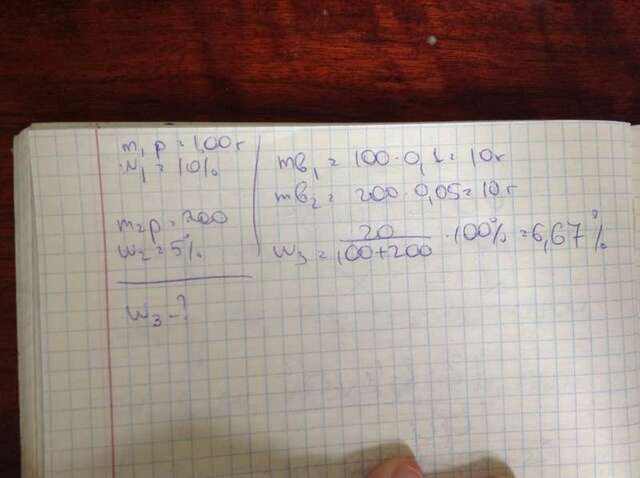 m₁р = 100г
w₁ = 10%
m₂р = 200
w₂ = 5%
w₃ - ?
mв₁ = 100 · 0,1 = 10г
mв₂ = 200 · 0,05 = 10г
w₃ = 20/100+200 · 100% = 6,67%